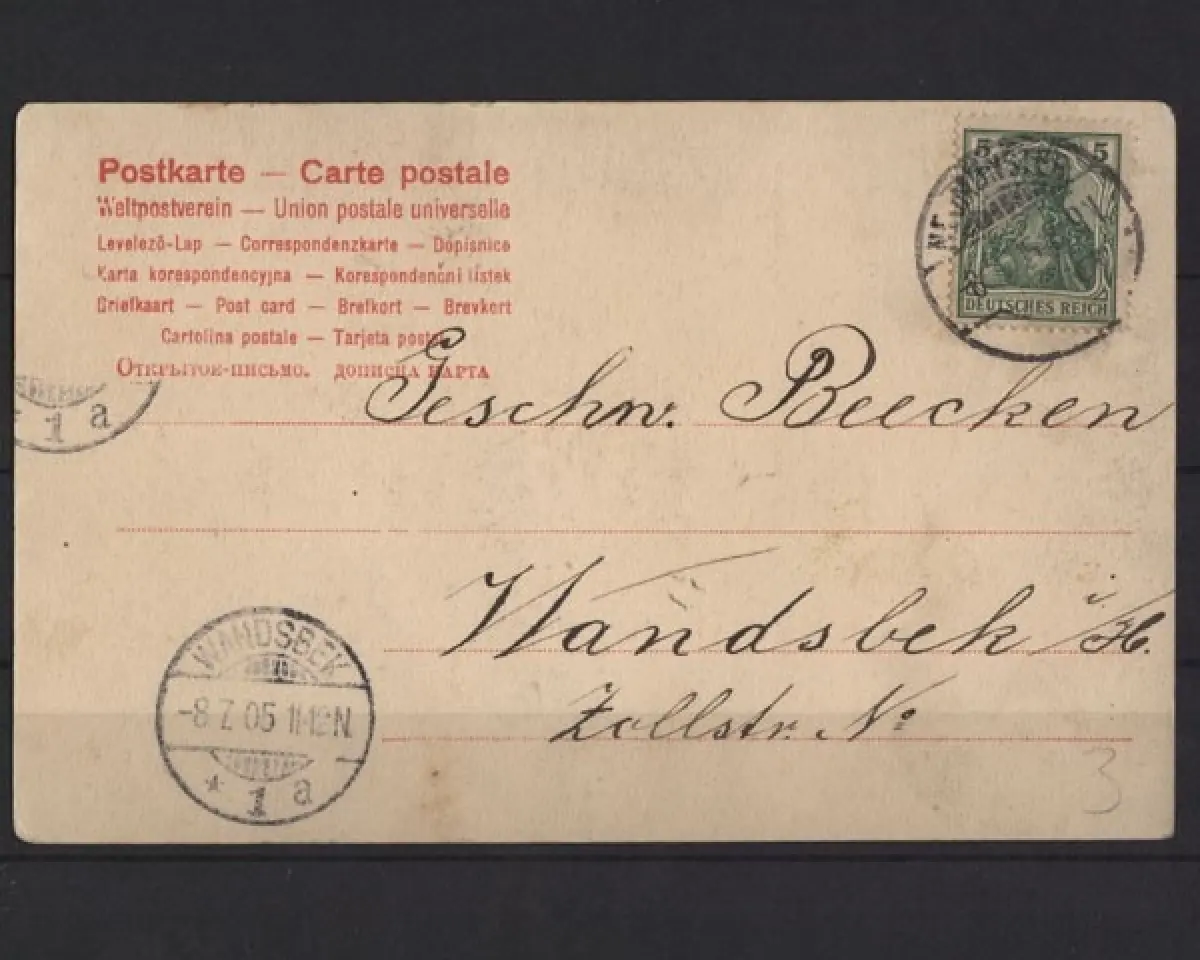 Postkarte — Carte postale
Weltpostverein — Union postale universelle
Levelezö-Lap — Correspondenzkarte — Dopisnice
Karta korespondencyjna — Korespondenční lístek
Briefkaart — Post card — Brefkort — Brevkort
Cartolina postale — Tarjeta postal
Открытое-письмо. дописна карта
5 5
NEUMÜNSTER
DEUTSCHES REICH
1 a
Geschw. Beecken
Wandsbek i/H.
Zollstr. No
3
WANDSBEK
-8.7.05 11-12N.
* 1 a